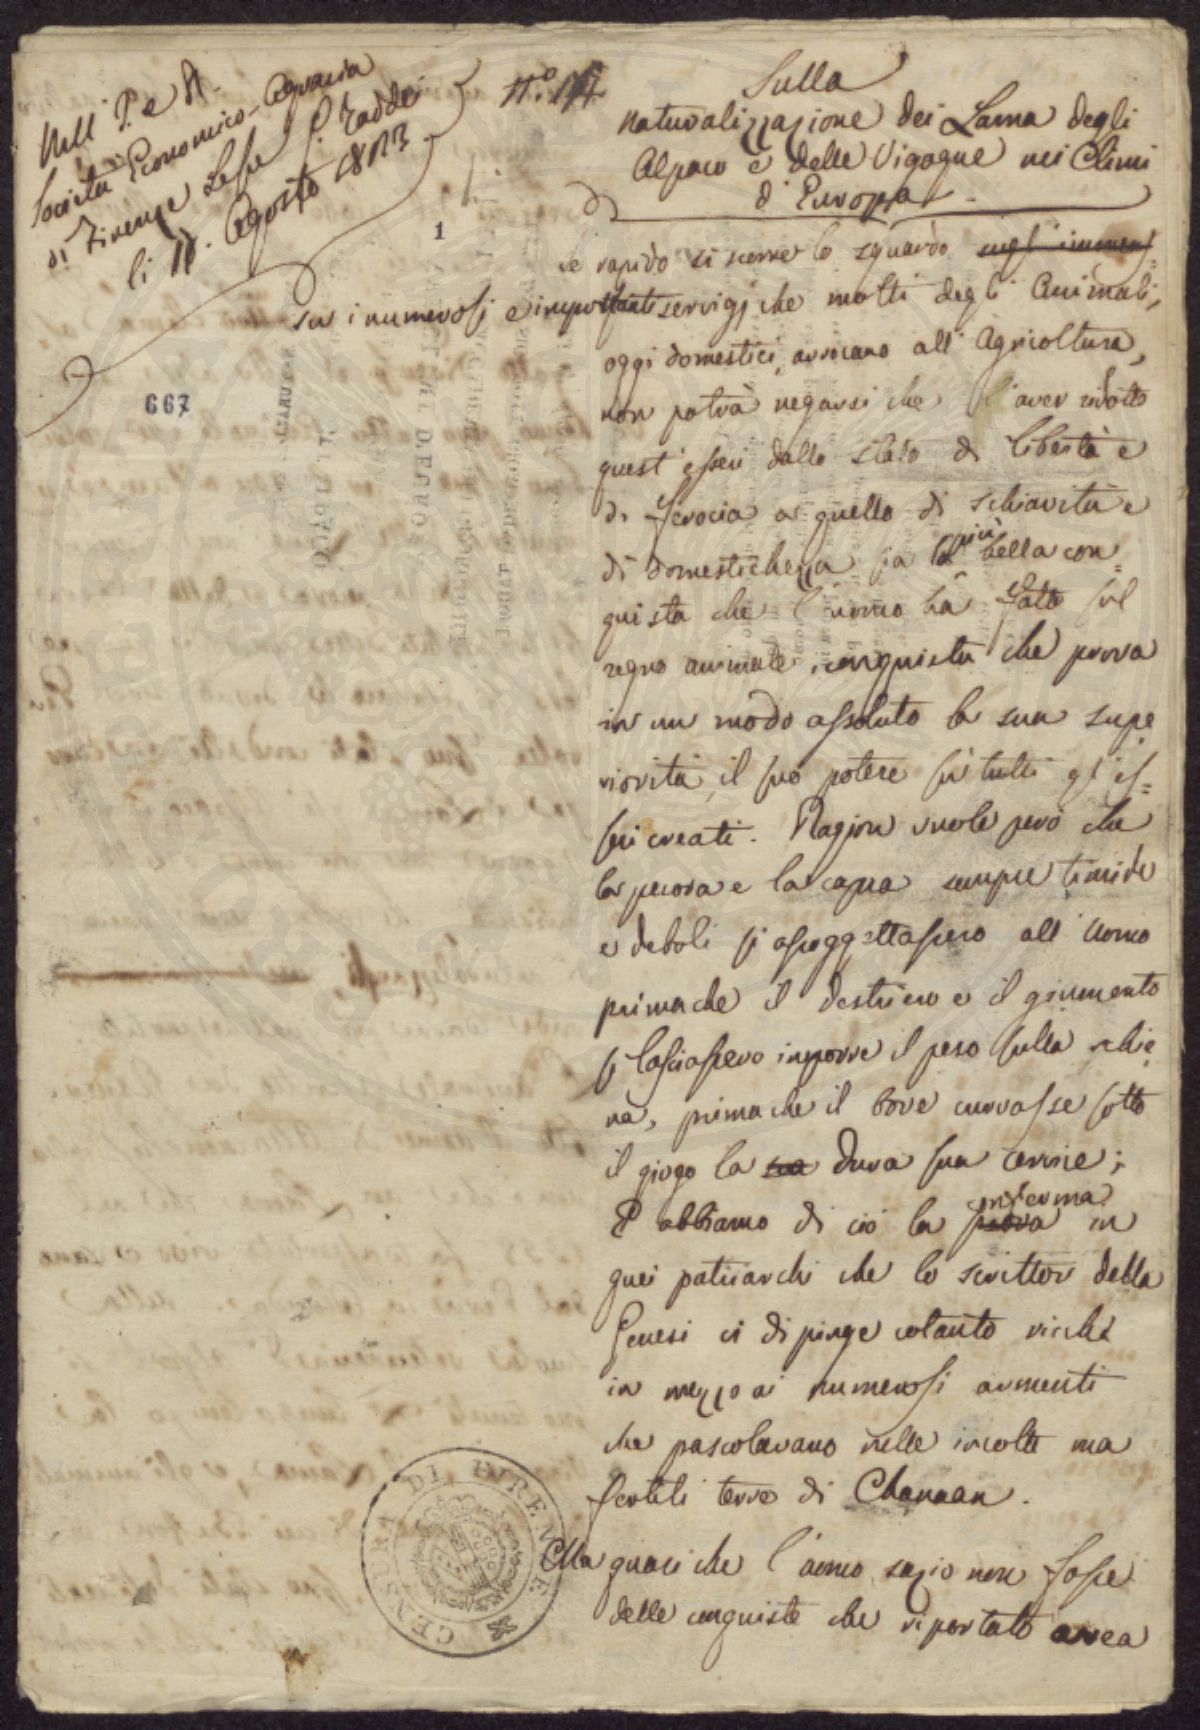 Nell' I. e R.
Società Economico-Agraria
di Firenze Lesse G. Taddei
li Agosto
N.°
1
667
Sulla
naturalizzazione dei Lama degli
Alpaco e delle Vigogne nei Climi
d'Europa.
Se rapido si scorre lo sguardo sugl' immens=
Su i numerosi e importanti servigj che molti degli Animali,
oggi domestici, arrecano all' Agricoltura,
non potrà negarsi che l'aver ridotto
quest' esseri dallo stato di libertà e
di ferocia a quello di schiavitù e
di domestichezza sia la più bella con=
quista che l'uomo ha fatto sul
regno animale, conquista che prova
in un modo assoluto la sua supe
riorità, il suo potere su tutti gl'es=
seri creati. Ragion vuole però che
la pecora e la capra sempre timide
e deboli si assoggettassero all' Uomo
prima che il destriero e il giumento
si lasciassero imporre il peso sulla schie
na, prima che il bove curvasse sotto
il giogo la sua dura sua cervice;
E abbiamo di ciò la prova conferma in
quei patriarchi che lo scrittor della
Genesi ci dipinge cotanto ricchi
in mezzo ai numerosi armenti
che pascolavano nelle incolte ma
fertili terre di Chanaan.
Ma quasi che l'uomo sazio non fosse
delle conquiste che riportato avea
CENSURA DI FIRENZE